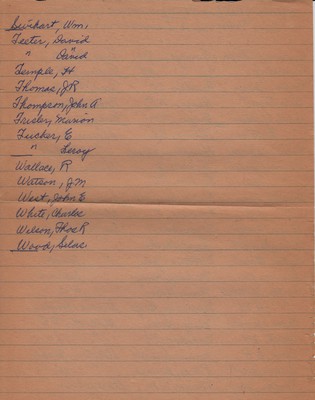 Swihart, Wm.
Teeter, David
" David
Temple, H
Thomas, JR
Thompson, John A
Trisler, Marion
Tucker, E
" Leroy
Wallace, R
Watson, JM
West, John E
White, Charles
Wilson, Thos R
Wood, Silas